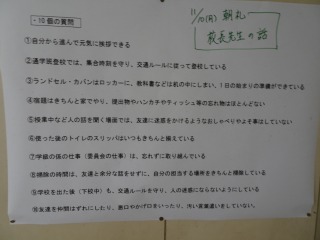 ・10個の質問
11/10(月) 朝礼
校長先生の話
①自分から進んで元気に挨拶できる
②通学班登校では、集合時刻を守り、交通ルールに従って登校している
③ランドセル・カバンはロッカーに、教科書などは机の中にしまい、1日の始まりの準備ができている
④宿題はきちんと家でやり、提出物やハンカチやティッシュ等の忘れ物はほとんどない
⑤授業中など人の話を聞く場面では、友達に迷惑をかけるようなおしゃべりやよそ事はしていない
⑥使った後のトイレのスリッパはいつもきちんと揃えている
⑦学級の係の仕事（委員会の仕事）は、忘れずに取り組んでいる
⑧掃除の時間は、友達と余分な話をせずに、自分の担当する場所をきちんと掃除している
⑨学校を出た後（下校中）も、交通ルールを守り、人の迷惑にならないようにしている
⑩友達を仲間はずれにしたり、悪口やかげ口をいったり、汚い言葉遣いをしていない。